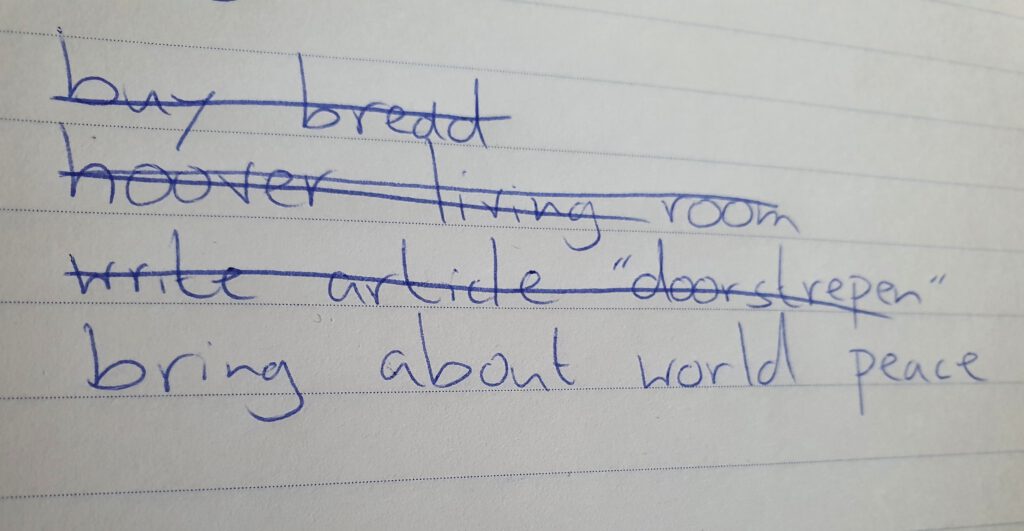 buy bread
hoover living room
write article "doorstrepen"
bring about world peace